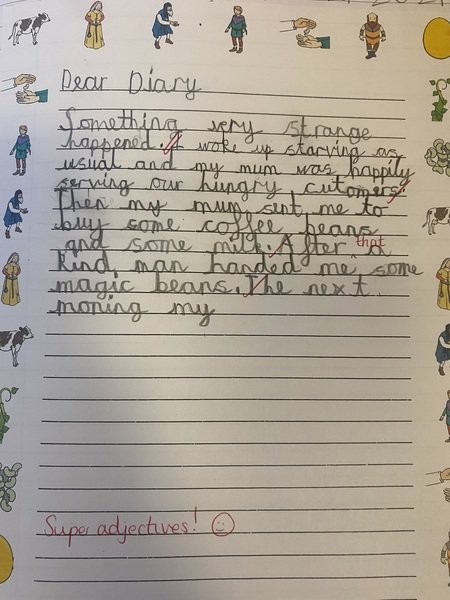 Dear Diary
Something very strange
happened. I woke up starving as
usual and my mum was happily
serving our hungry cutomers.
Then my mum sent me to
buy some coffee beans
and some milk. After that a
kind man handed me some
magic beans. The next
moning my
Super adjectives!